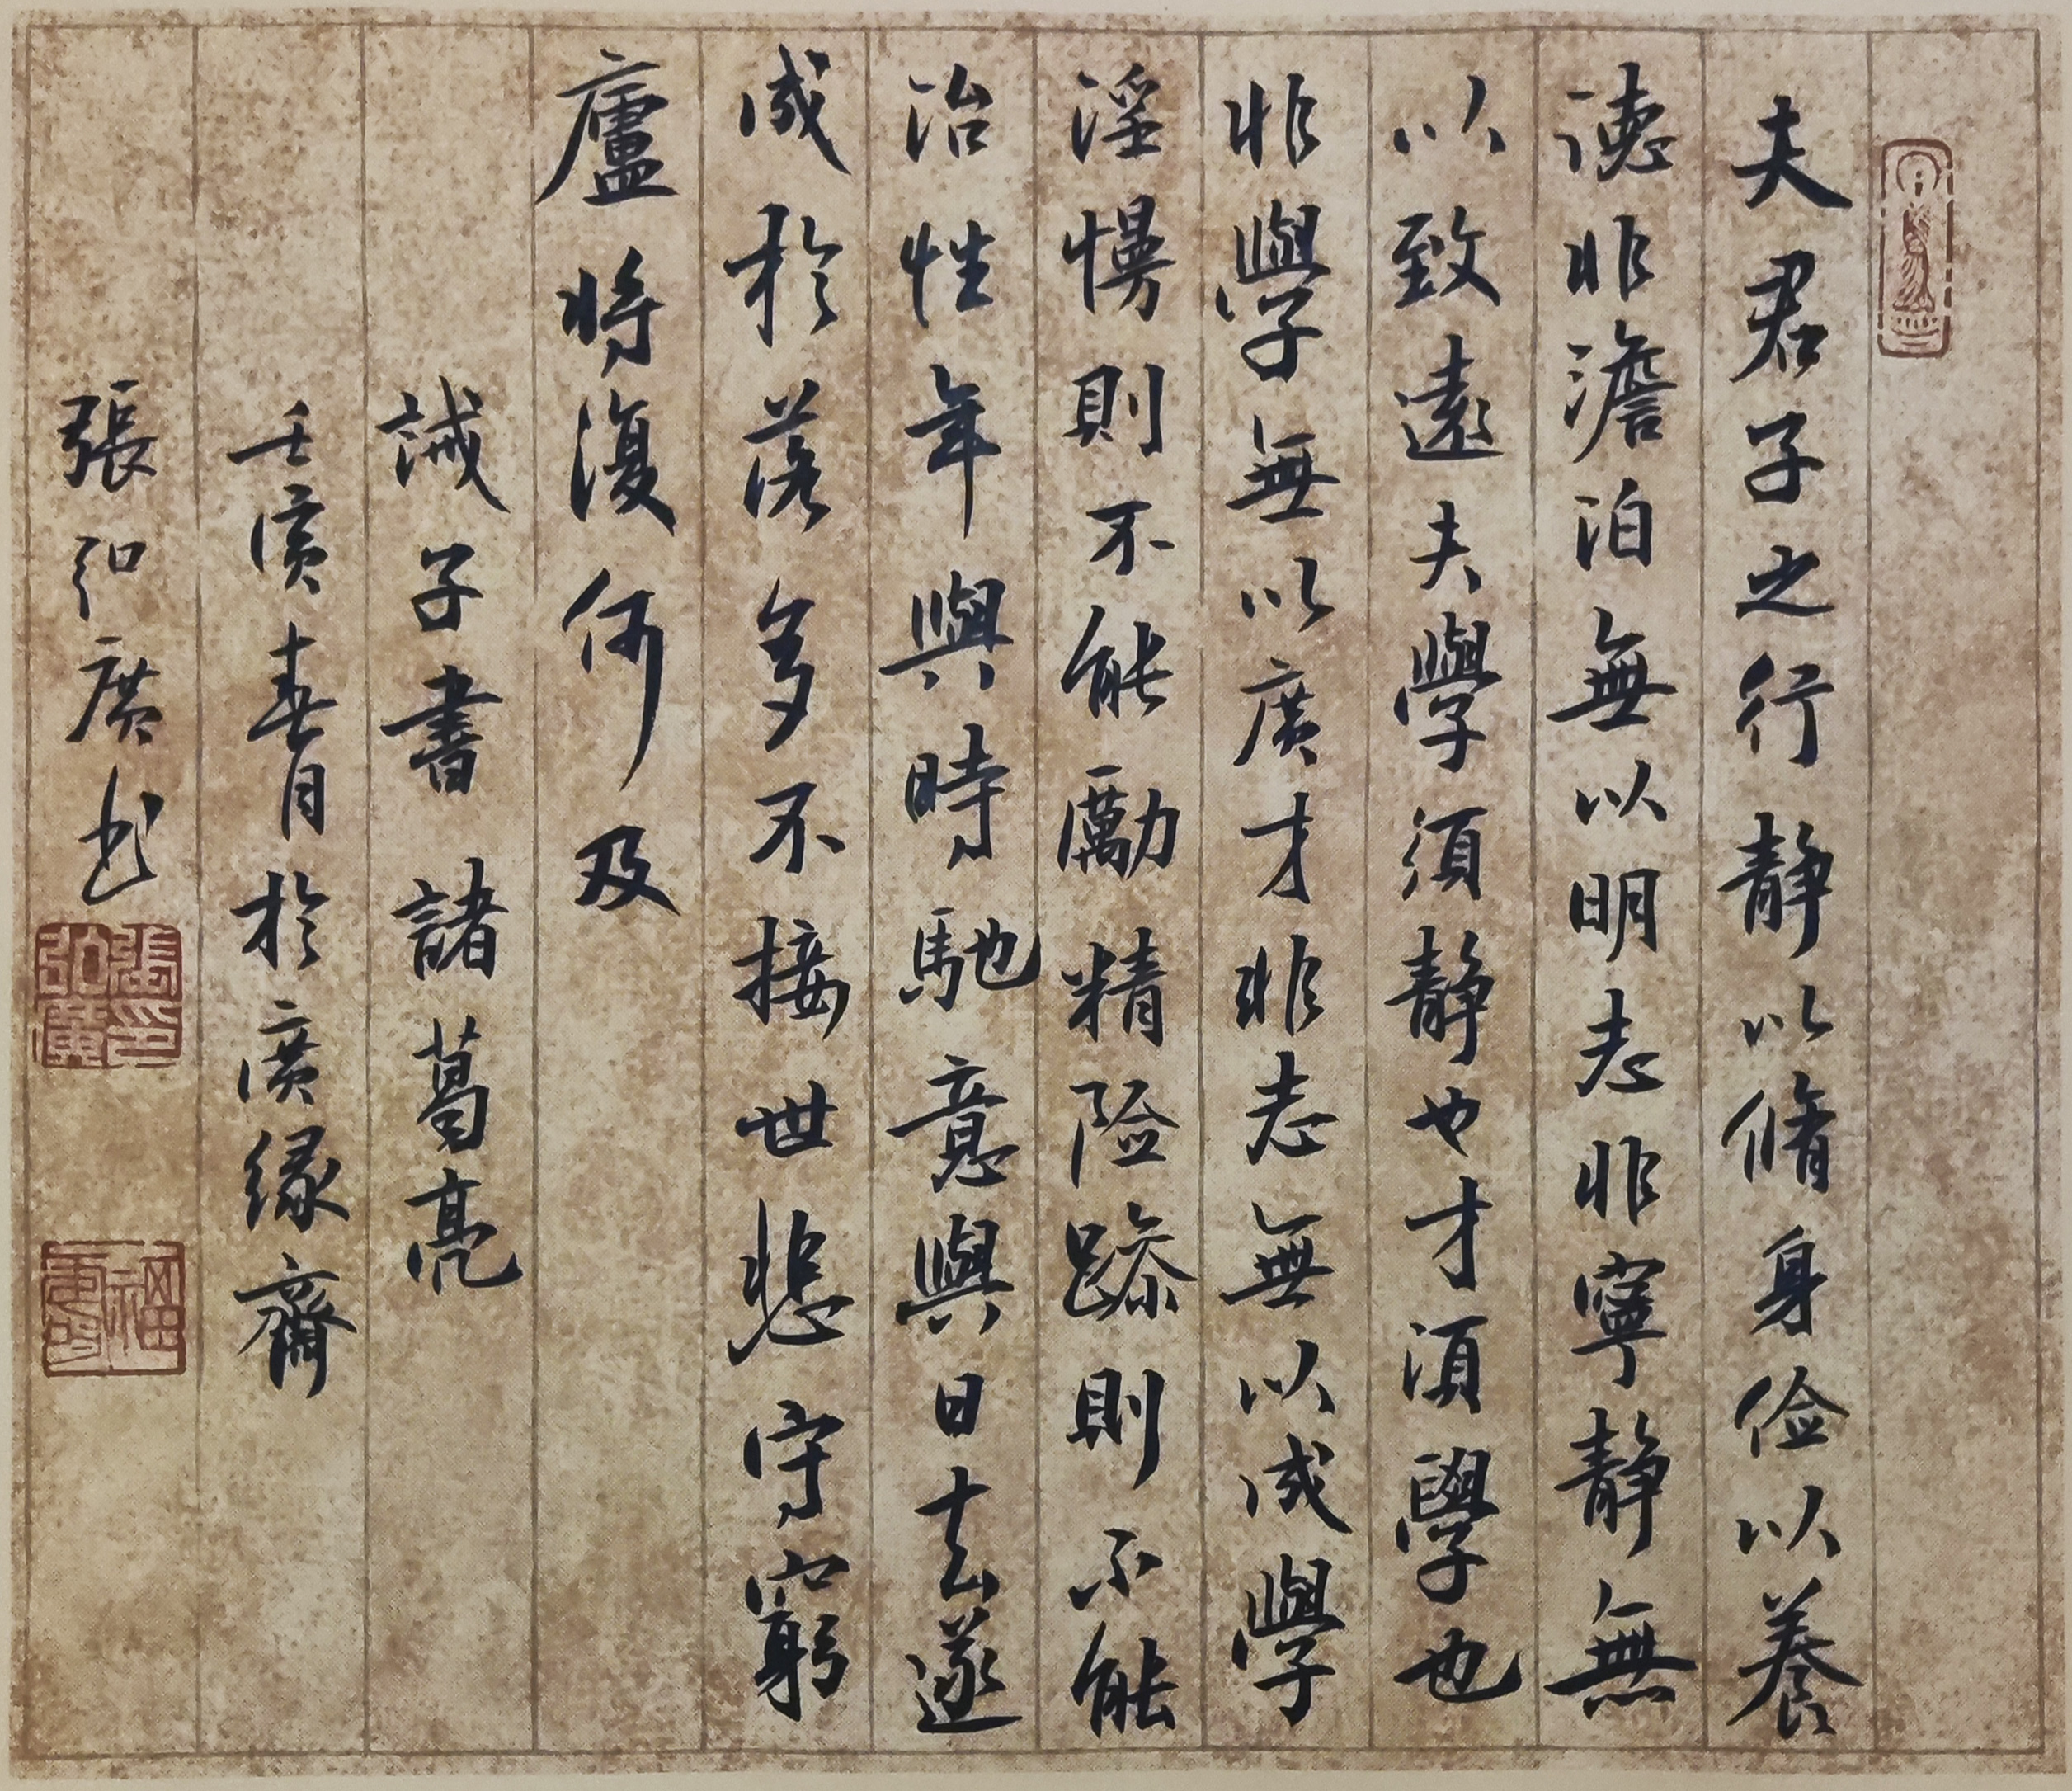 夫君子之行静以脩身俭以養
德非澹泊無以明志非寧静無
以致遠夫學須静也才須學也
非學無以廣才非志無以成學
淫慢則不能勵精险躁則不能
治性年與時馳意與日去遂
成於落多不接世悲守窮
廬将復何及
誡子書 諸葛亮
壬寅春月於廣缘齋
張弘廣书
張弘廣印